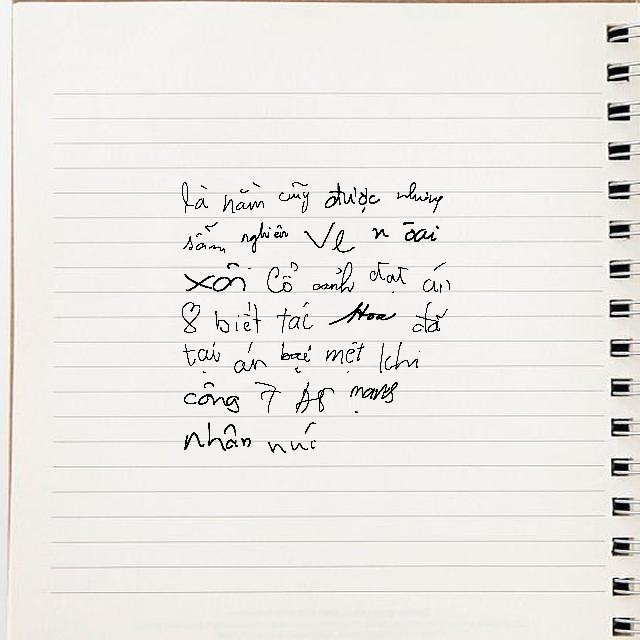 là năm cũng được nhưng
sấm nghiên Ve n
xôi Cổ oanh đạt án
8 biết tác Hoa đã
tại án bại mệt khi
công 7 mang
nhân núi